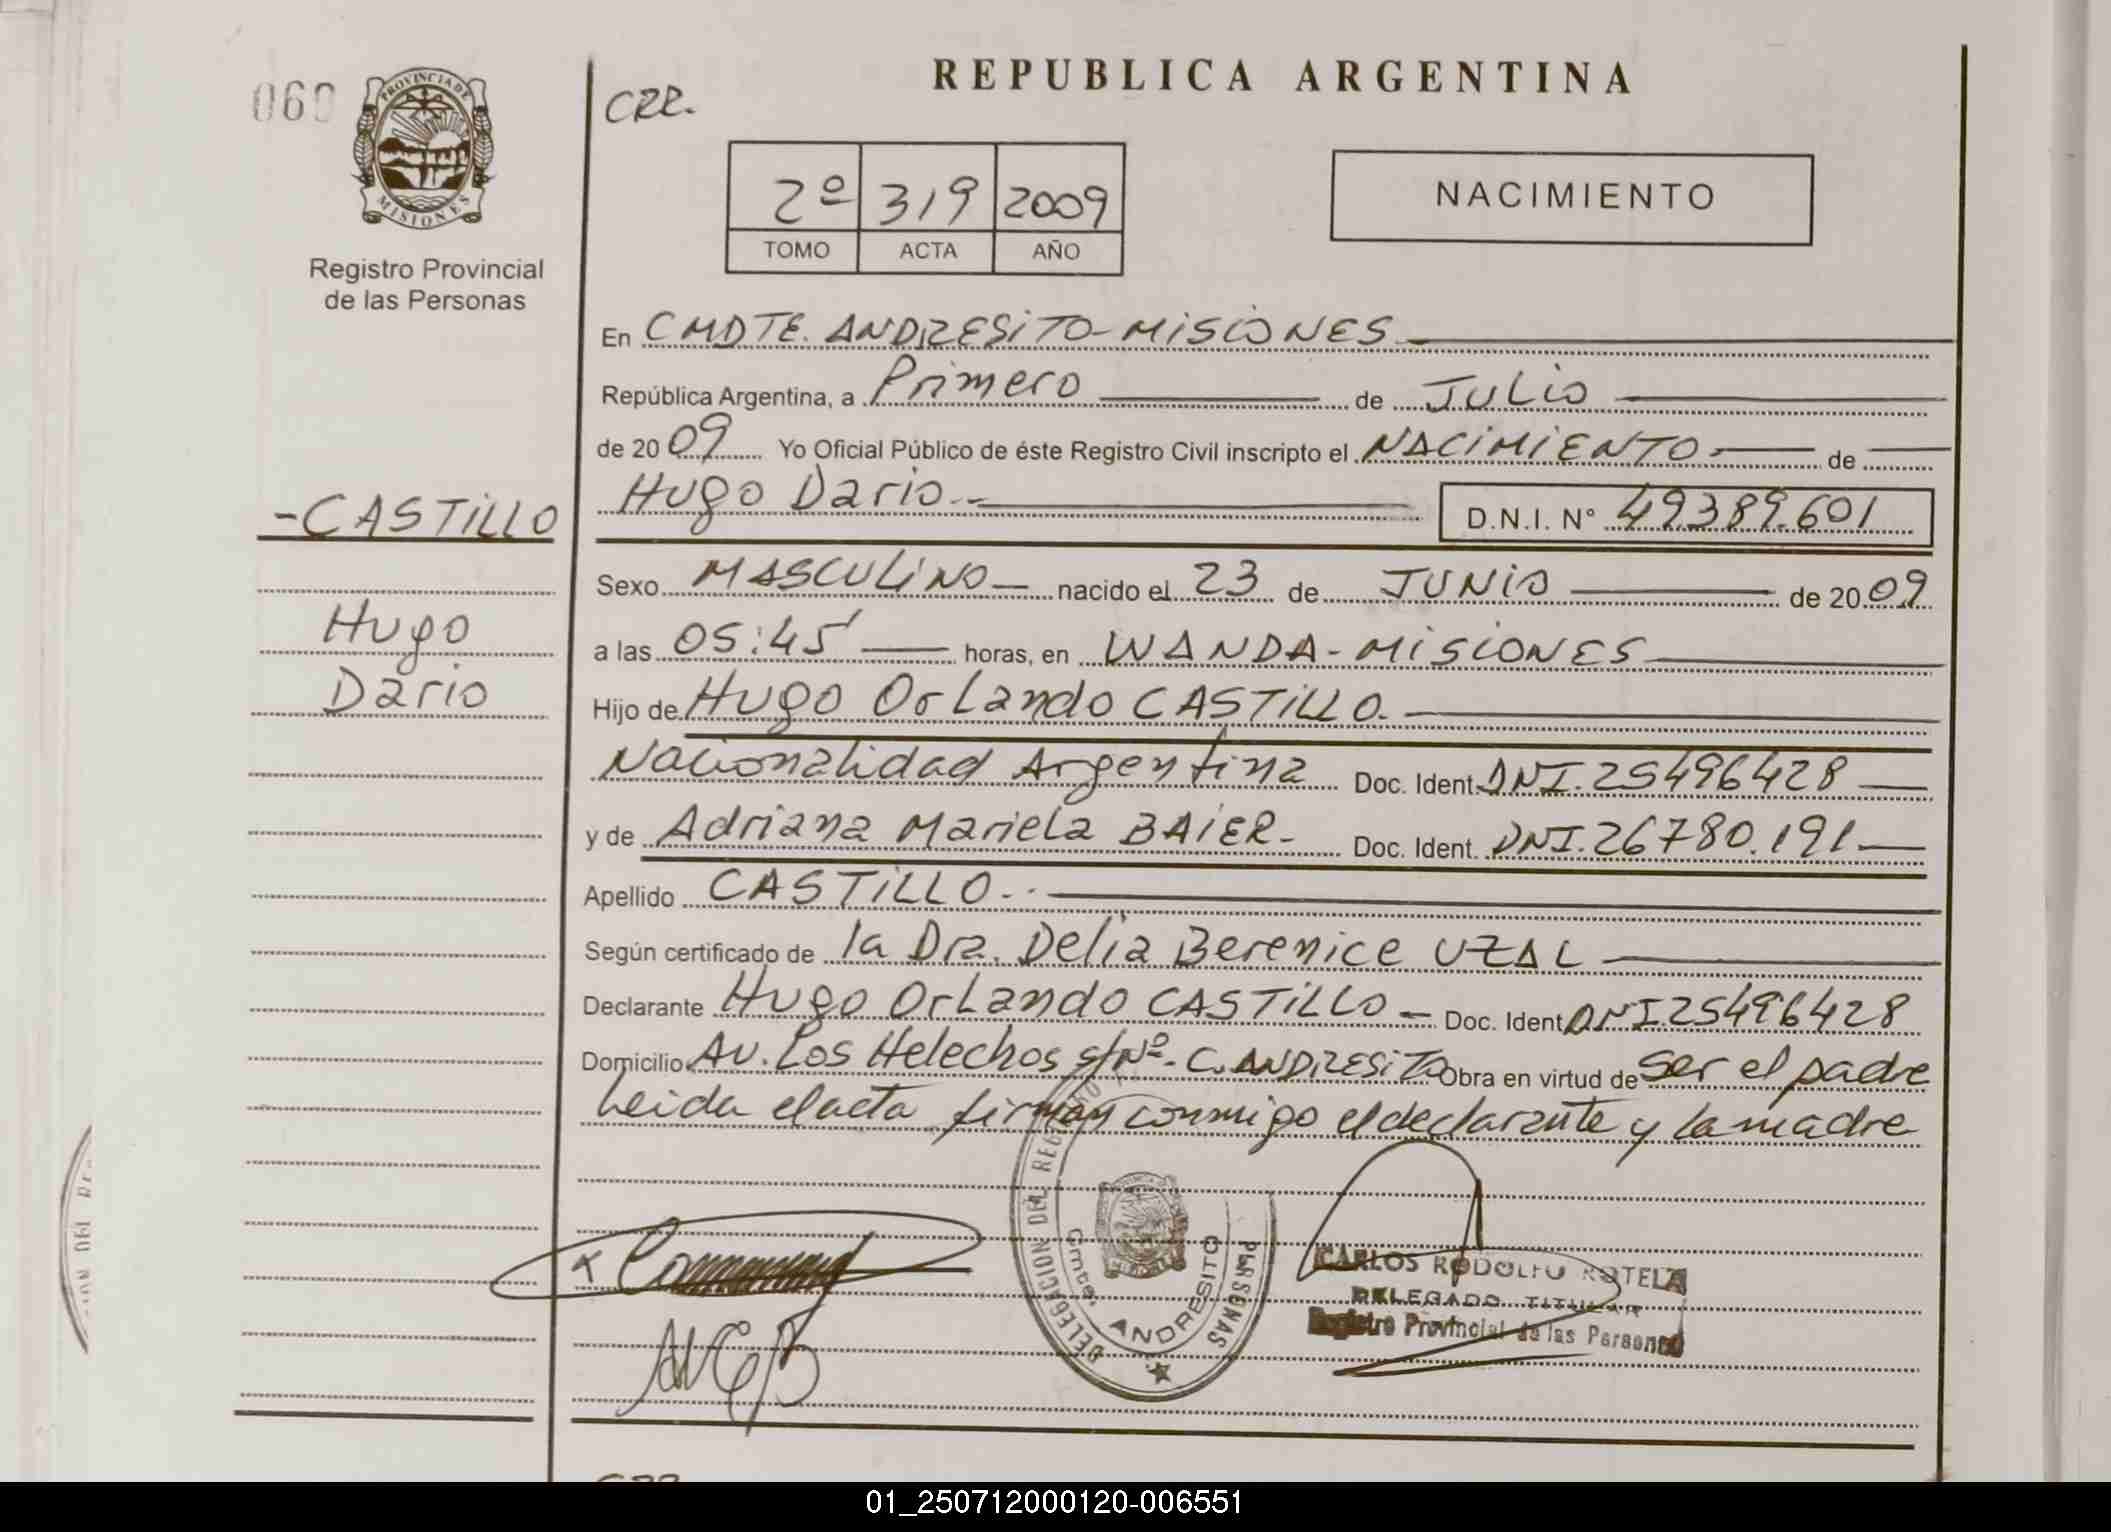 060
PROVINCIA DE
MISIONES
Registro Provincial
de las Personas
CRR.
REPUBLICA ARGENTINA
2º 319 2009
TOMO ACTA AÑO
NACIMIENTO
En CMDTE. ANDRESITO-MISIONES
República Argentina, a Primero de JULIO
de 2009 Yo Oficial Público de éste Registro Civil inscripto el NACIMIENTO de
Hugo Dario.- D.N.I. N° 49389.601
-CASTILLO
Hugo
Dario
Sexo MASCULINO nacido el 23 de JUNIO de 2009
a las 05:45 horas, en WANDA-MISIONES
Hijo de Hugo Orlando CASTILLO.
Nacionalidad Argentina Doc. Ident. DNI.25496428
y de Adriana Mariela BAIER- Doc. Ident. DNI.26780.191
Apellido CASTILLO.-
Según certificado de la Dra. Delia Berenice UZAL
Declarante Hugo Orlando CASTILLO - Doc. Ident DNI.25496428
Domicilio Av. Los Helechos s/Nº- C.ANDRESITO Obra en virtud de ser el padre
Leida el acta firman conmigo el declarante y la madre
DELEGACION DEL REGISTRO
PERSONAS
Cmte. ANDRESITO
CARLOS RODOLFO ROTELA
DELEGADO TITULAR
Registro Provincial de las Personas
01_250712000120-006551